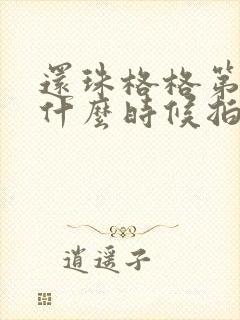 還珠格格第
什麼時候拍
逍遥子